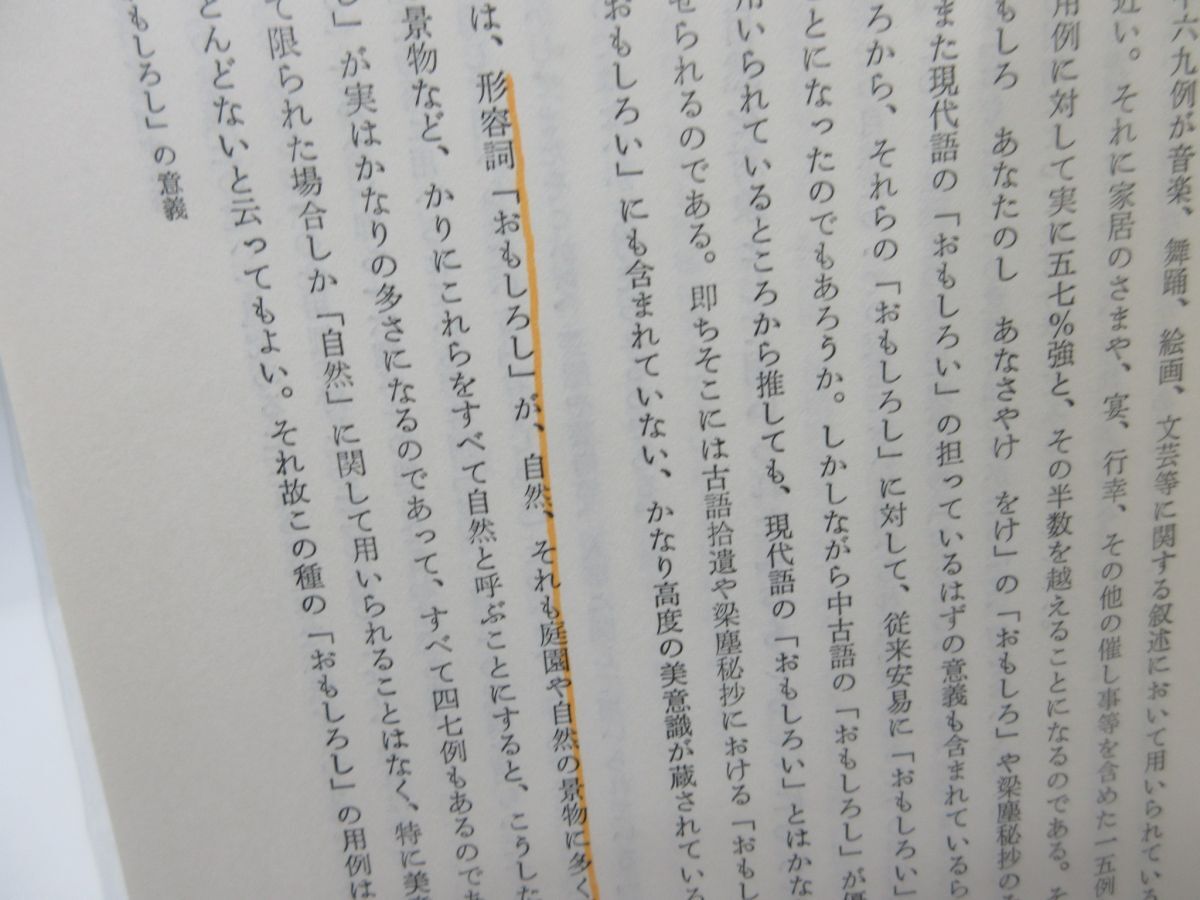 六九例が音楽、舞踊、絵画、文芸等に関する叙述において用いられている
近い。それに家居のさまや、宴、行幸、その他の催し事等を含めた一五例
用例に対して実に五七%強と、その半数を越えることになるのである。そ
もしろ あなたのし あなさやけ をけ」の「おもしろ」や梁塵秘抄の
また現代語の「おもしろい」の担っているはずの意義も含まれているら
ろから、それらの「おもしろし」に対して、従来安易に「おもしろい」
とになったのでもあろうか。しかしながら中古語の「おもしろし」が
用いられているところから推しても、現代語の「おもしろい」とはかな
せられるのである。即ちそこには古語拾遺や梁塵秘抄における「おもし
おもしろい」にも含まれていない、かなり高度の美意識が蔵されている
は、形容詞「おもしろし」が、自然、それも庭園や自然の景物に多く
景物など、かりにこれらをすべて自然と呼ぶことにすると、こうした
し」が実はかなりの多さになるのであって、すべて四七例もあるのであ
て限られた場合しか「自然」に関して用いられることはなく、特に美
とんどないと云ってもよい。それ故この種の「おもしろし」の用例は
もしろし」の意義